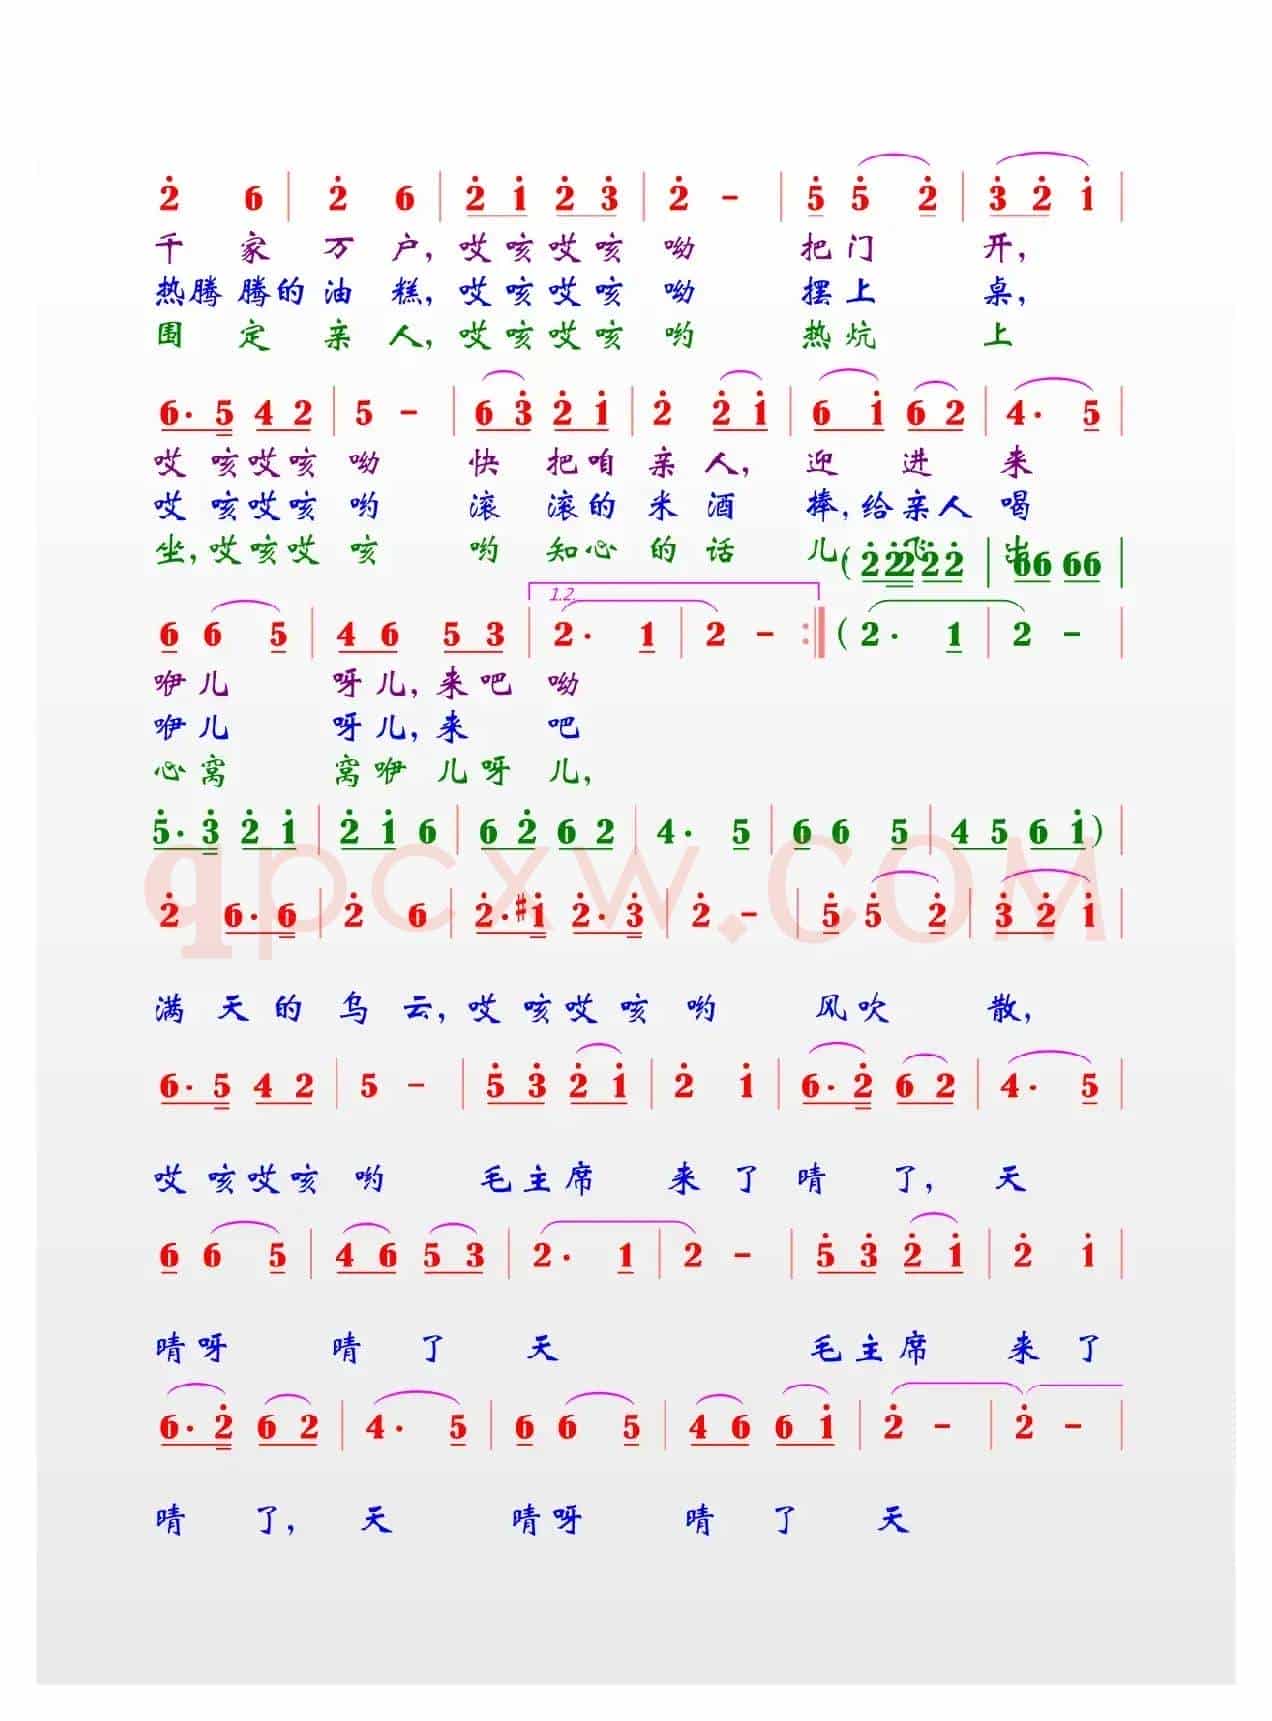 2̇ 6 | 2̇ 6 | 2̇ 1̇ 2̇ 3̇ | 2̇ - | 5̇ 5̇ 2̇ | 3̇ 2̇ 1̇ |
千 家 万 户, 哎 咳 哎 咳 呦 把 门 开,
热腾 腾的 油 糕, 哎 咳 哎 咳 呦 摆 上 桌,
围 定 亲 人, 哎 咳 哎 咳 哟 热 炕 上
6· 5 4 2 | 5 - | 6 3̇ 2̇ 1̇ | 2̇ 2̇ 1̇ | 6 1̇ 6 2 | 4· 5 |
哎 咳 哎 咳 呦 快 把 咱 亲 人, 迎 进 来
哎 咳 哎 咳 哟 滚 滚 的 米 酒 捧, 给 亲 人 喝
坐, 哎 咳 哎 咳 哟 知 心 的 话 儿 飞 出
(2̇ 2̇2̇ 2̇ 2̇ | 66 66 |
1.2.
6 6 5 | 4 6 5 3 | 2· 1 | 2 - :| (2· 1 | 2 - |
咿 儿 呀 儿, 来 吧 呦
咿 儿 呀 儿, 来 吧
心 窝 窝 咿 儿 呀 儿,
5̇· 3̇ 2̇ 1̇ | 2̇ 1̇ 6 | 6 2̇ 6 2 | 4· 5 | 6 6 5 | 4 5 6 1̇) |
qpcxw.COM
2̇ 6· 6 | 2̇ 6 | 2̇· #1̇ 2̇· 3̇ | 2̇ - | 5̇ 5̇ 2̇ | 3̇ 2̇ 1̇ |
满 天 的 乌 云, 哎 咳 哎 咳 哟 风 吹 散,
6· 5 4 2 | 5 - | 5̇ 3̇ 2̇ 1̇ | 2̇ 1̇ | 6· 2̇ 6 2 | 4· 5 |
哎 咳 哎 咳 哟 毛 主 席 来 了 晴 了, 天
6 6 5 | 4 6 5 3 | 2· 1 | 2 - | 5̇ 3̇ 2̇ 1̇ | 2̇ 1̇ |
晴 呀 晴 了 天 毛 主 席 来 了
6· 2̇ 6 2 | 4· 5 | 6 6 5 | 4 6 6 1̇ | 2̇ - | 2̇ - |
晴 了, 天 晴 呀 晴 了 天